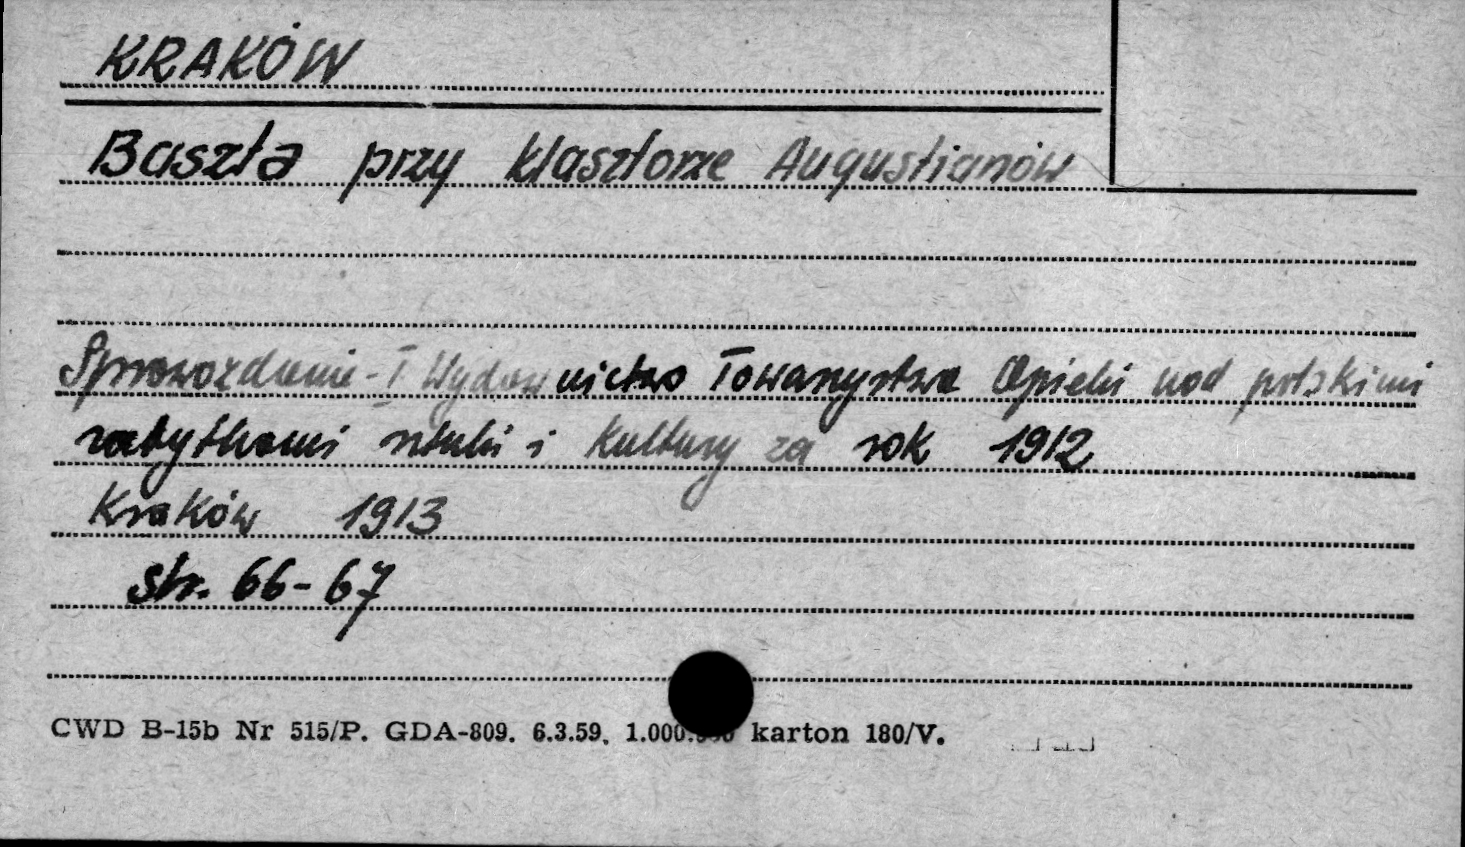 KRAKÓW
Baszta przy klasztorze Augustianów
Sprawozdanie - I Wydawnictwo Towarzystwa Opieki nad polskimi
zabytkami sztuki i kultury za rok 1912
Kraków 1913
str. 66-67
CWD B-15b Nr 515/P. GDA-809. 6.3.59. 1.000.000 karton 180/V.